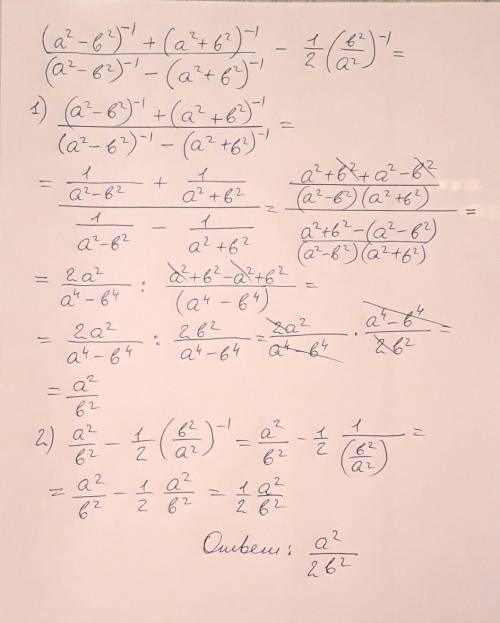 ((a²-в²)⁻¹ + (a²+в²)⁻¹)/((a²-в²)⁻¹ - (a²+в²)⁻¹) - 1/2 (в²/a²)⁻¹ =
1) ((a²-в²)⁻¹ + (a²+в²)⁻¹)/((a²-в²)⁻¹ - (a²+в²)⁻¹) =
= (1/(a²-в²) + 1/(a²+в²))/(1/(a²-в²) - 1/(a²+в²)) = ((a²+в²+a²-в²)/((a²-в²)(a²+в²)))/((a²+в²-(a²-в²))/((a²-в²)(a²+в²))) =
= 2a²/(a⁴-в⁴) : (a²+в²-a²+в²)/(a⁴-в⁴) =
= 2a²/(a⁴-в⁴) : 2в²/(a⁴-в⁴) = 2a²/(a⁴-в⁴) · (a⁴-в⁴)/2в² =
= a²/в²
2) a²/в² - 1/2 (в²/a²)⁻¹ = a²/в² - 1/2 1/(в²/a²) =
= a²/в² - 1/2 a²/в² = 1/2 a²/в²
Ответ: a²/2в²